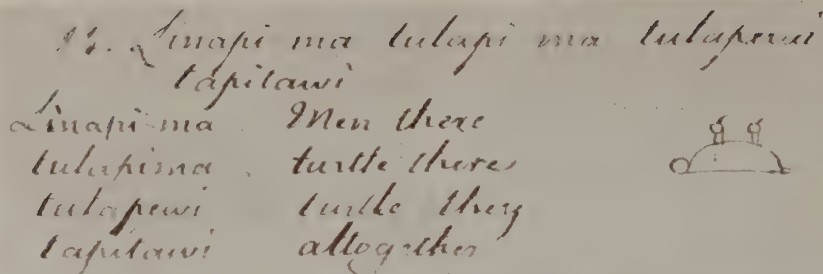 Linapi ma tulapi ma tulapewi
tapitawi
Linapi-ma Men there
tulapima turtle there
tulapewi turtle they
tapitawi altogether